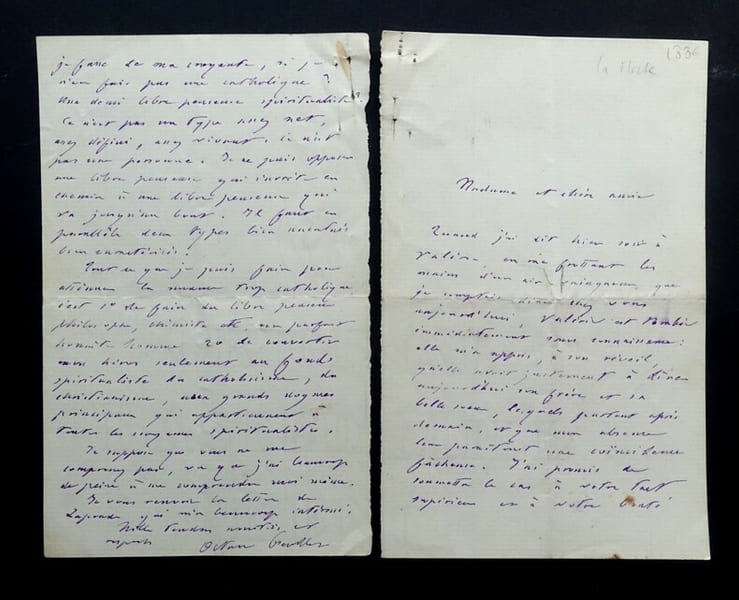 je fasse de ma croyante, si je
n'en fais pas une catholique ?
Une demi libre penseuse spiritualiste.
Ce n'est pas un type assez net,
assez défini, assez vivant. Ce n'est
pas une personne. Je ne puis opposer
une libre penseuse qui s'arrête en
chemin à une libre penseuse qui
va jusqu'au bout. Il faut en
parallèle deux types bien accentués
bien caractérisés.
Tout ce que je puis faire pour
atténuer la nuance trop catholique
c'est 1o de faire du libre penseur
philosophe, chimiste etc un parfait
honnête homme 2o de convertir
mon héros seulement au fonds
spiritualiste du catholicisme, du
christianisme, aux grands dogmes
principaux qui appartiennent à
toutes les croyances spiritualistes.
Je suppose que vous ne me
comprenez pas, vu que j'ai beaucoup
de peine à me comprendre moi même.
Je vous renvoie la lettre de
qui m'a beaucoup intéressé.
Mille tendres amitiés, et
respects Octave Feuillet
1336
la
Madame et chère amie
Quand j'ai dit hier soir à
Valérie, en me frottant les
mains d'un air vainqueur, que
je comptais dîner chez vous
aujourd'hui, Valérie est tombée
immédiatement sans connaissance :
elle m'a appris, à son réveil,
qu'elle avait justement à dîner
aujourd'hui son frère et sa
belle soeur, lesquels partent après
demain, et que mon absence
leur paraîtrait une coïncidence
fâcheuse. J'ai promis de
soumettre le cas à votre tact
supérieur et à votre bonté